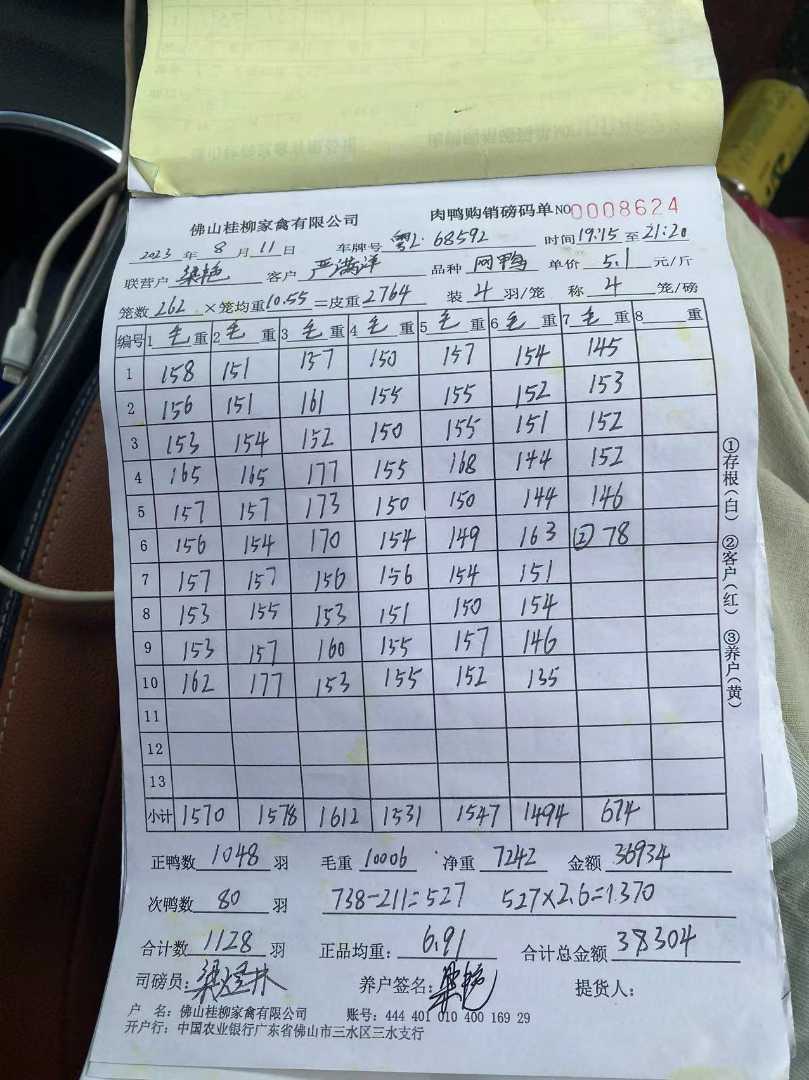 佛山桂柳家禽有限公司 肉鸭购销磅码单 NO0008624
2023 年 8 月 11 日 车牌号 粤L·68592 时间 19:15 至 21:20
联营户 梁艳 客户 严满洋 品种 网鸭 单价 5.1 元/斤
笼数 262 ×笼均重 10.55 =皮重 2764 装 4 羽/笼 称 4 笼/磅
编号 1 毛 重 2 毛 重 3 毛 重 4 毛 重 5 毛 重 6 毛 重 7 毛 重 8 重
1 158 151 157 150 157 154 145
2 156 151 161 155 155 152 153
3 153 154 152 150 155 151 152
4 165 165 177 155 168 144 152
5 157 157 173 150 150 144 146
6 156 154 170 154 149 163 ② 78
7 157 157 156 156 154 151
8 153 155 153 151 150 154
9 153 157 160 155 157 146
10 162 177 153 155 152 135
11
12
13
小计 1570 1578 1612 1531 1547 1494 674
正鸭数 1048 羽 毛重 10006 净重 7242 金额 36934
次鸭数 80 羽 738-211=527 527×2.6=1370
合计数 1128 羽 正品均重: 6.91 合计总金额 38304
司磅员: 养户签名: 梁艳 提货人:
户 名: 佛山桂柳家禽有限公司 账号: 444 401 010 400 169 29
开户行: 中国农业银行广东省佛山市三水区三水支行
①存根(白) ②客户(红) ③养户(黄)